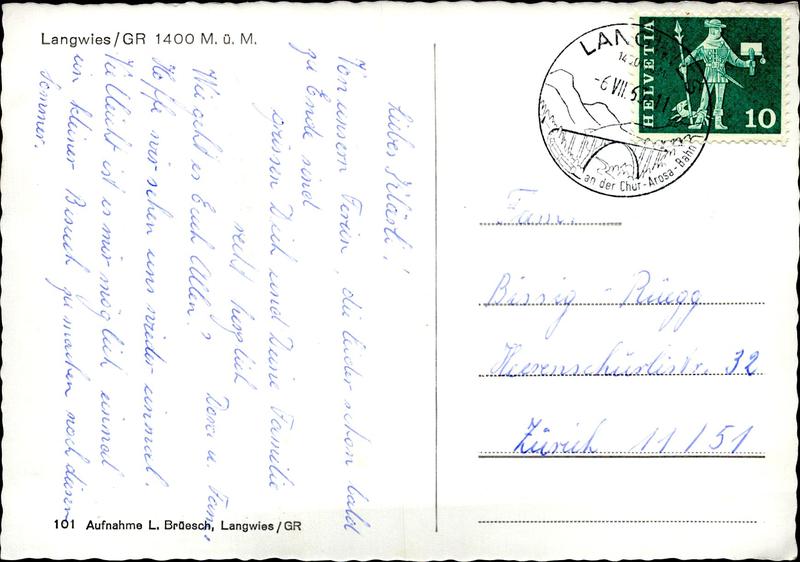 Langwies/GR 1400 M. ü. M.
Liebes Kläsli!
Von unserm Ferien, die leider schon bald
zu Ende sind
grüssen Dich und Deine Familie
recht herzlich
Dora u. Fam.
Wie geht es Euch Allen?
Hoffe wir sehen uns wieder einmal.
Vielleicht ist es mir möglich einmal
ein kleiner Besuch zu machen noch diesen
Sommer.
101 Aufnahme L. Brüesch, Langwies/GR
HELVETIA
10
LANGWIES
-6.VII.
an der Chur-Arosa-Bahn
Fam.
Bissig - Rüegg
Heerenschürlistr. 32
Zürich 11/51